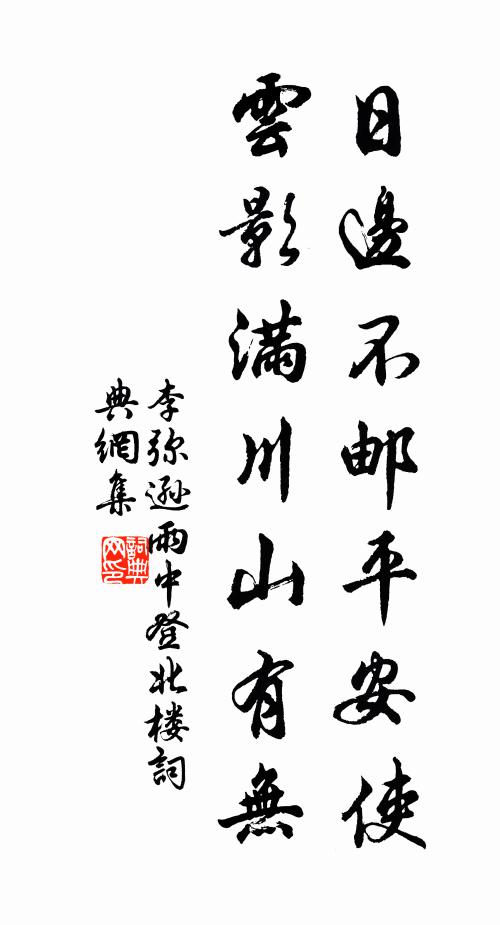 日邊不邮平安使
雲影滿川山有無
李弥遜雨中登北楼詞
典網集
詞典网印